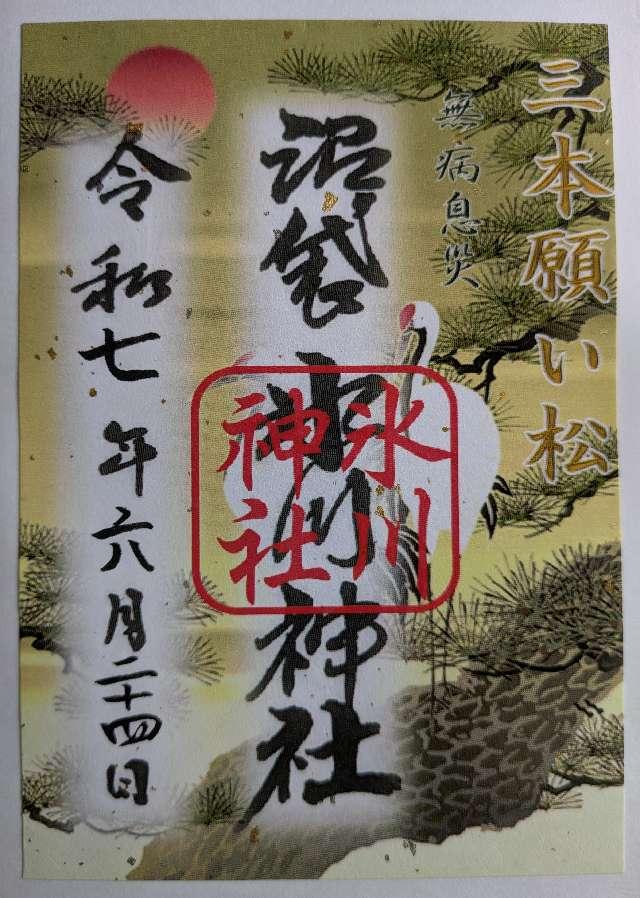 三本願い松
無病息災
沼袋氷川神社
氷川
神社
令和七年六月二十四日